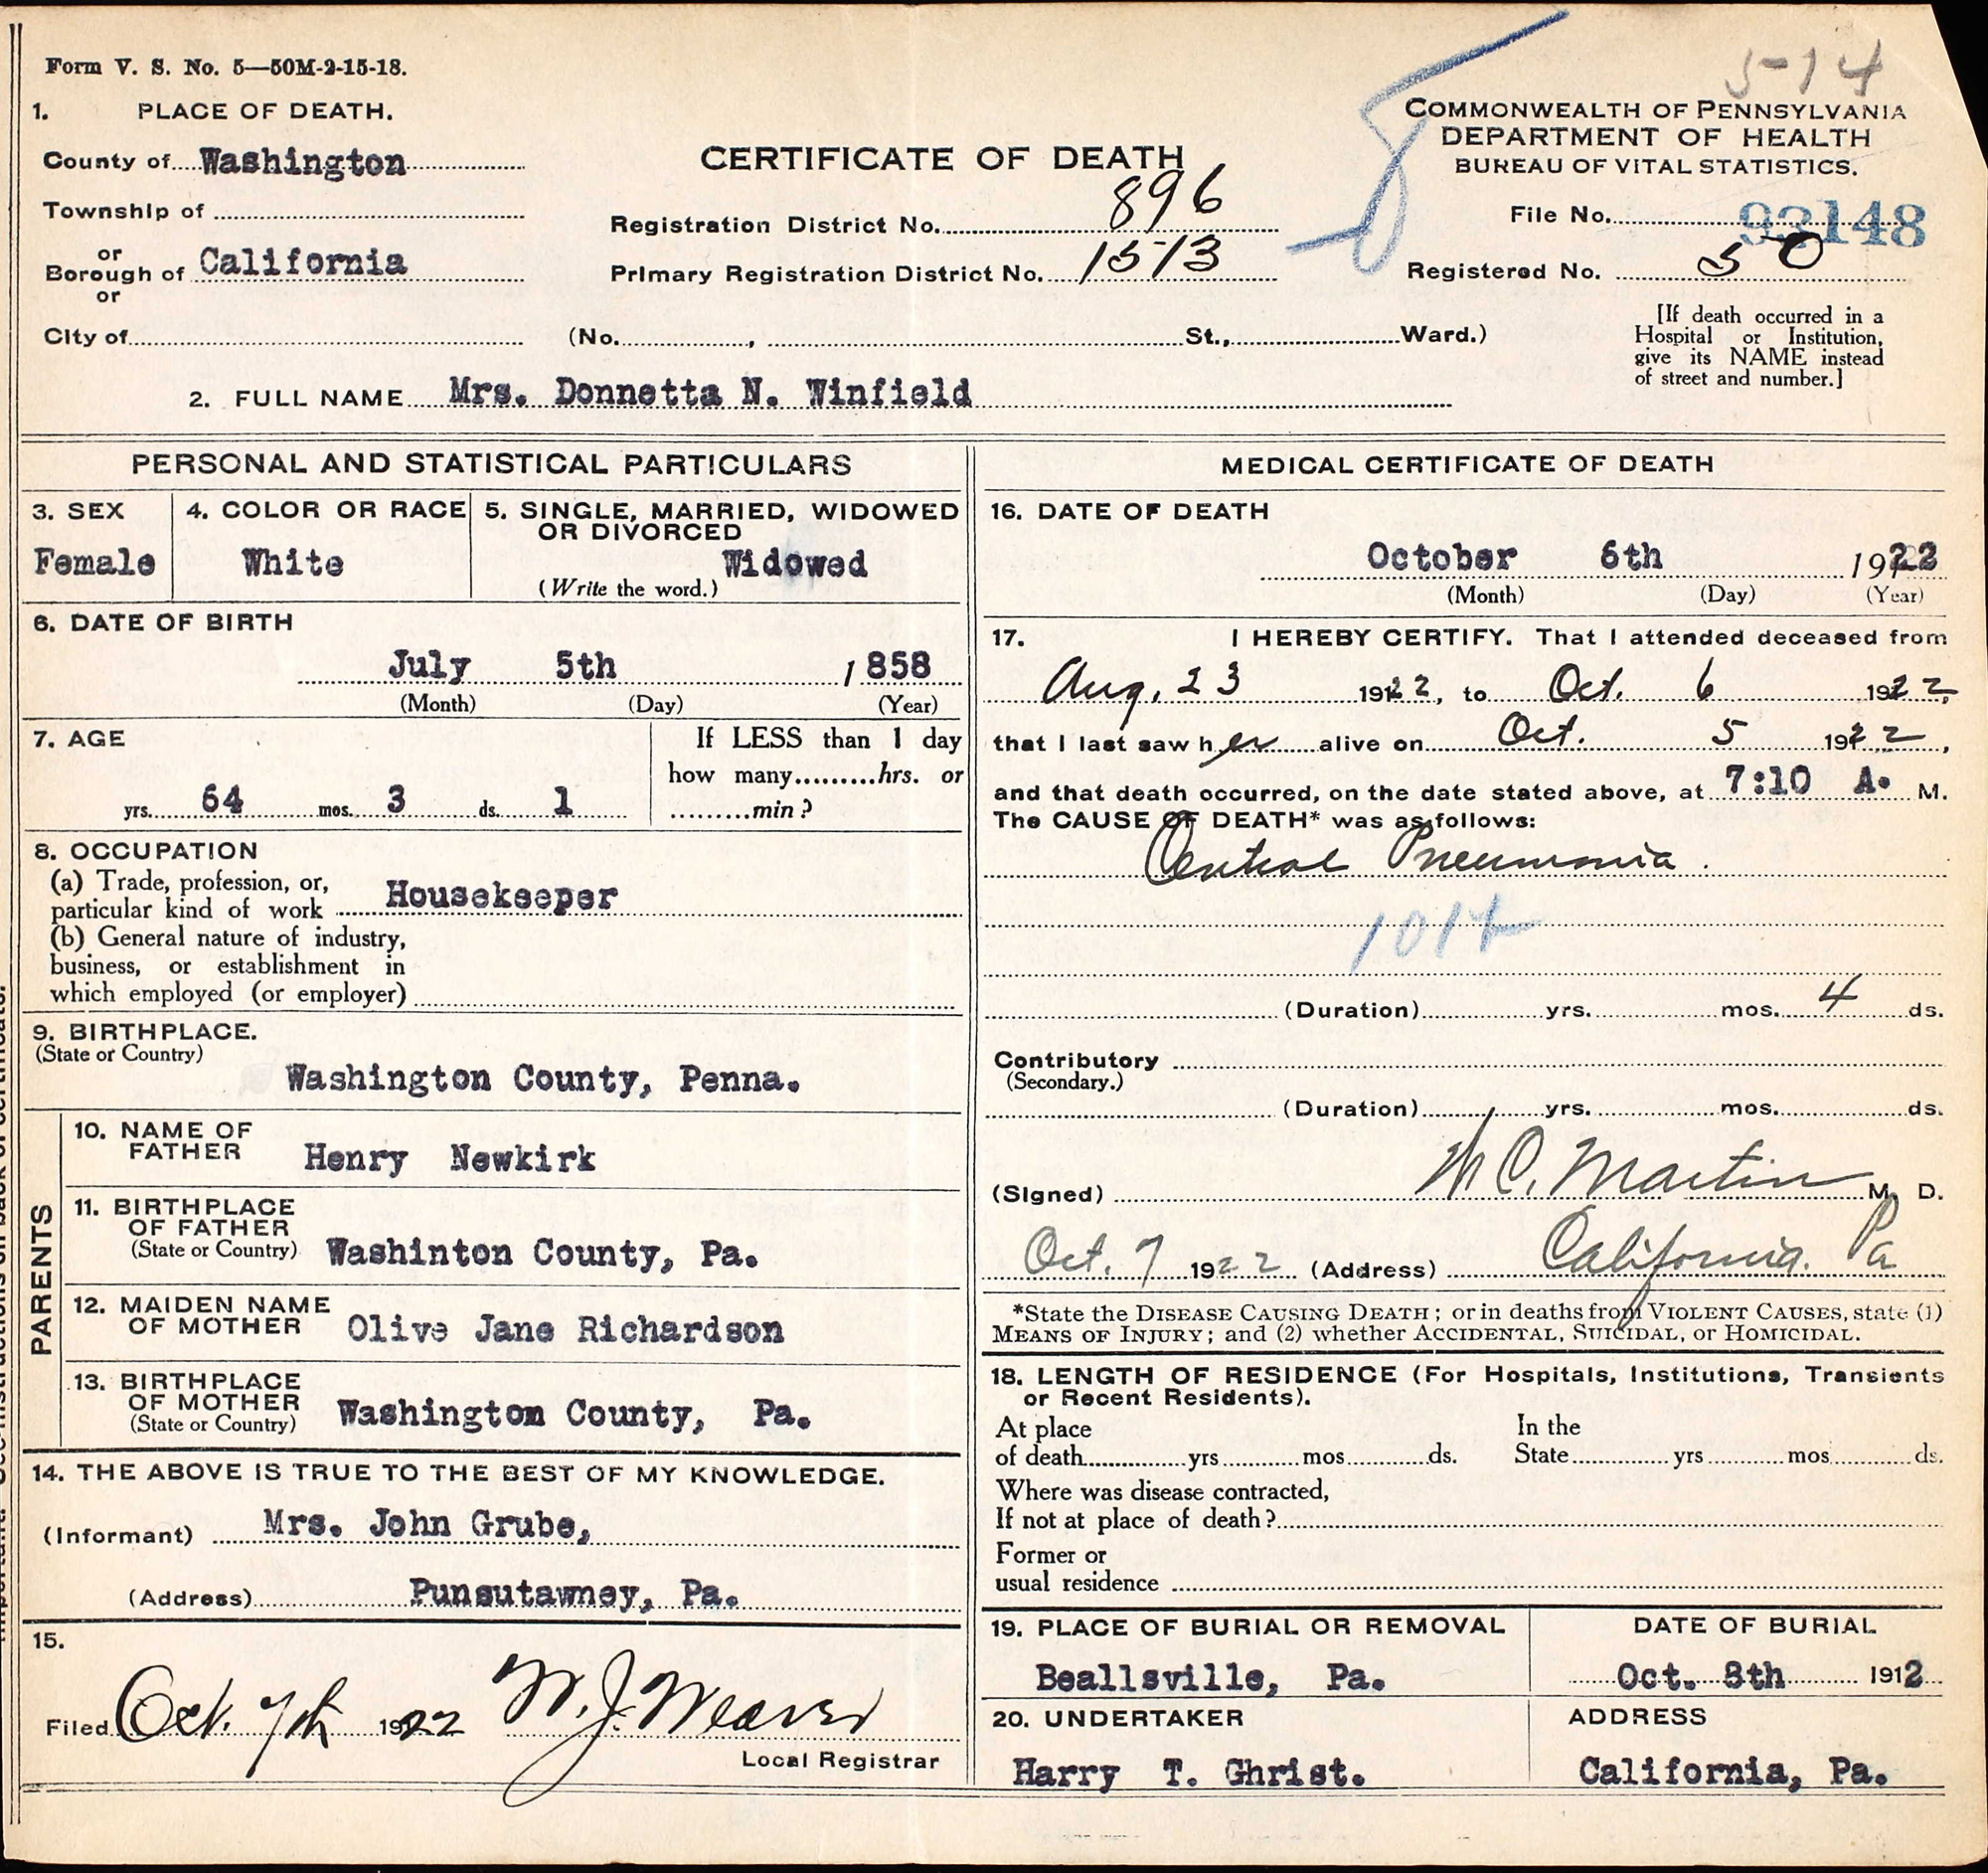 5-14
Form V. S. No. 5—50M-2-15-18.
1. PLACE OF DEATH.
County of Washington
Township of
or
Borough of California
or
City of (No. , St., Ward.)
CERTIFICATE OF DEATH
Registration District No. 896
Primary Registration District No. 1513
COMMONWEALTH OF PENNSYLVANIA
DEPARTMENT OF HEALTH
BUREAU OF VITAL STATISTICS.
File No. 93148
Registered No. 50
[If death occurred in a
Hospital or Institution,
give its NAME instead
of street and number.]
2. FULL NAME Mrs. Donnetta N. Winfield
PERSONAL AND STATISTICAL PARTICULARS
3. SEX
Female
4. COLOR OR RACE
White
5. SINGLE, MARRIED, WIDOWED
OR DIVORCED
Widowed
(Write the word.)
6. DATE OF BIRTH
July 5th 1858
(Month) (Day) (Year)
7. AGE
yrs. 64 mos. 3 ds. 1
If LESS than 1 day
how many hrs. or
min?
8. OCCUPATION
(a) Trade, profession, or,
particular kind of work Housekeeper
(b) General nature of industry,
business, or establishment in
which employed (or employer)
9. BIRTHPLACE.
(State or Country)
Washington County, Penna.
PARENTS
10. NAME OF
FATHER Henry Newkirk
11. BIRTHPLACE
OF FATHER
(State or Country) Washinton County, Pa.
12. MAIDEN NAME
OF MOTHER Olive Jane Richardson
13. BIRTHPLACE
OF MOTHER
(State or Country) Washington County, Pa.
14. THE ABOVE IS TRUE TO THE BEST OF MY KNOWLEDGE.
(Informant) Mrs. John Grube,
(Address) Punsutawney, Pa.
15.
Filed Oct. 7th 1922 W. J. Weaver
Local Registrar
MEDICAL CERTIFICATE OF DEATH
16. DATE OF DEATH
October 6th 1922
(Month) (Day) (Year)
17. I HEREBY CERTIFY. That I attended deceased from
Aug. 23 1922, to Oct. 6 1922,
that I last saw her alive on Oct. 5 1922,
and that death occurred, on the date stated above, at 7:10 A. M.
The CAUSE OF DEATH* was as follows:
Central Pneumonia.
(Duration) yrs. mos. 4 ds.
Contributory
(Secondary.)
(Duration) yrs. mos. ds.
(Signed) W C. Martin M. D.
Oct. 7 1922 (Address) California. Pa
*State the DISEASE CAUSING DEATH; or in deaths from VIOLENT CAUSES, state (1)
MEANS OF INJURY; and (2) whether ACCIDENTAL, SUICIDAL, or HOMICIDAL.
18. LENGTH OF RESIDENCE (For Hospitals, Institutions, Transients
or Recent Residents).
At place In the
of death yrs mos ds. State yrs mos. ds.
Where was disease contracted,
If not at place of death?
Former or
usual residence
19. PLACE OF BURIAL OR REMOVAL
Beallsville, Pa.
DATE OF BURIAL
Oct. 8th 1912
20. UNDERTAKER
Harry T. Ghrist.
ADDRESS
California, Pa.